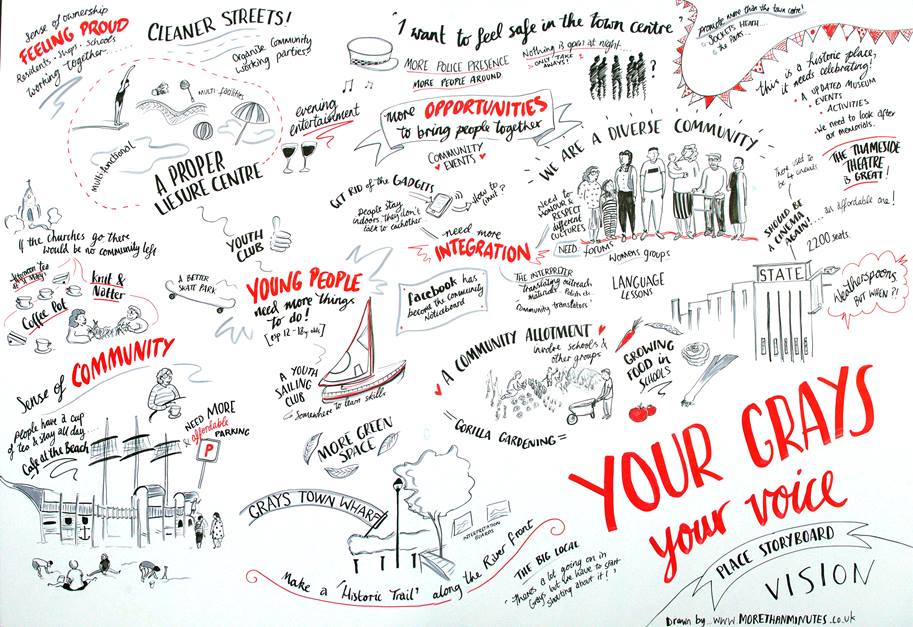 Sense of ownership
FEELING PROUD
Residents · Shops · Schools
Working Together......
CLEANER STREETS!
Organise Community
working parties?
"I want to feel safe in the town centre"
MORE POLICE PRESENCE
MORE PEOPLE AROUND.
Nothing is open at night...
ONLY TAKE
AWAYS!
?
promote more than the town centre!
SOCKETTS HEATH...
the Parks...
this is a historic place,
it needs celebrating!
• A UPDATED MUSEUM
EVENTS
• ACTIVITIES
• We need to look after
our memorials.
THE THAMESIDE
THEATRE
IS GREAT!
MULTI-facilities
multi-functional
A PROPER
LIESURE CENTRE
evening
entertainment
more OPPORTUNITIES
to bring people together
COMMUNITY
EVENTS
WE ARE A DIVERSE COMMUNITY
GET RID of the GADGETS
People stay
indoors, they don't
talk to eachother
How to
limit?
need more
INTEGRATION
Need to
HONOUR &
RESPECT
different
CULTURES
NEED: forums
Womens groups
LANGUAGE
LESSONS
THE INTERPRETER
translating outreach
materials
Community translators
There used to
be 4 cinemas
SHOULD BE
A CINEMA
AGAIN!...
an affordable one!
2200 seats.
STATE
Weatherspoons
BUT WHEN?!
If the churches go there
would be no community left
Afternoon Tea
Knit &
Natter
Coffee Pot
YOUTH
CLUB
A BETTER
SKATE PARK
YOUNG PEOPLE
need more things
to do!
[esp 12-18 yr olds]
Facebook has
become the community
Noticeboard
A COMMUNITY ALLOTMENT
involve schools &
other groups
GROWING
FOOD in
SCHOOLS
GORILLA GARDENING =
Sense of COMMUNITY
People have a cup
of tea & stay all day...
Cafe at the Beach
NEED MORE
& affordable
PARKING
P
A YOUTH
SAILING
CLUB
Somewhere to learn skills
MORE GREEN
SPACE
GRAYS TOWN WHARF
INTERPRETATION
BOARDS
Make a 'Historic Trail' along the River front
THE BIG LOCAL
"There's a lot going on in
Grays but we have to start
shouting about it!"
YOUR GRAYS
your voice
PLACE STORYBOARD
VISION
Drawn by... www.MORETHANMINUTES.co.uk